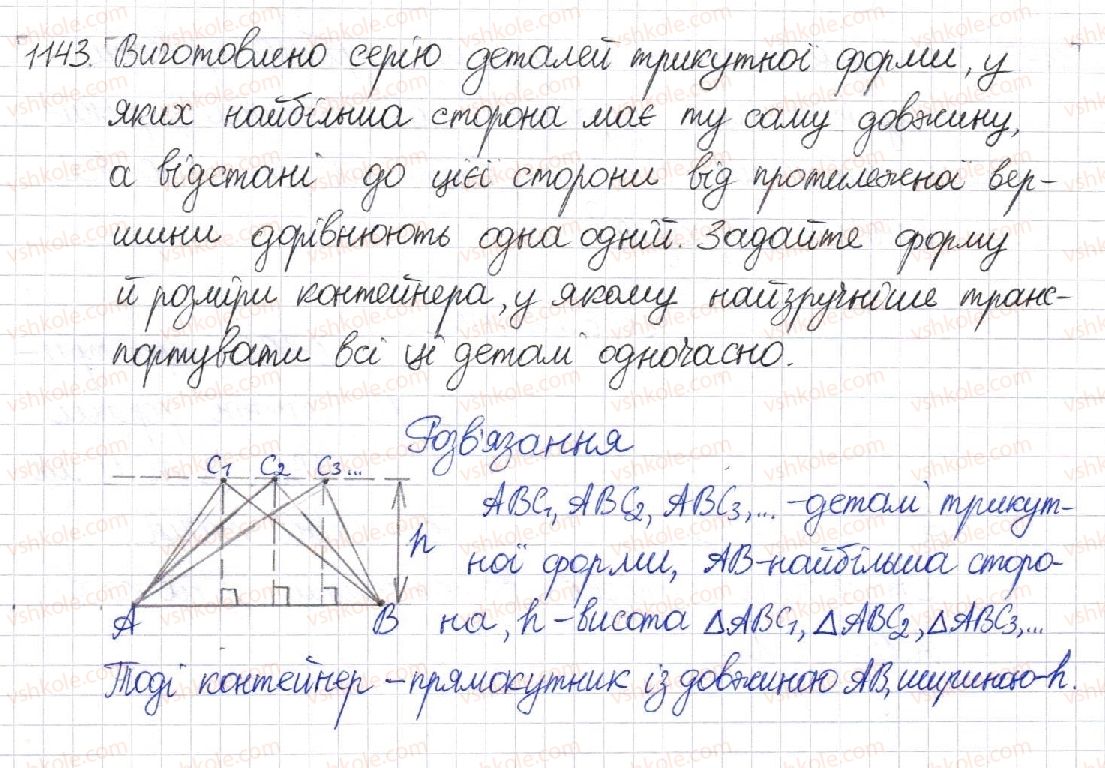 1143. Виготовлено серію деталей трикутної форми, у
яких найбільша сторона має ту саму довжину,
а відстані до цієї сторони від протилежної вер-
шини дорівнюють одна одній. Задайте форму
й розміри контейнера, у якому найзручніше транс-
портувати всі ці деталі одночасно.
Розв'язання
C1 C2 C3...
h
A B
ABC1, ABC2, ABC3,... - деталі трикут-
ної форми, AB - найбільша сторо-
на, h - висота △ABC1, △ABC2, △ABC3,...
Тоді контейнер - прямокутник із довжиною AB, шириною - h.